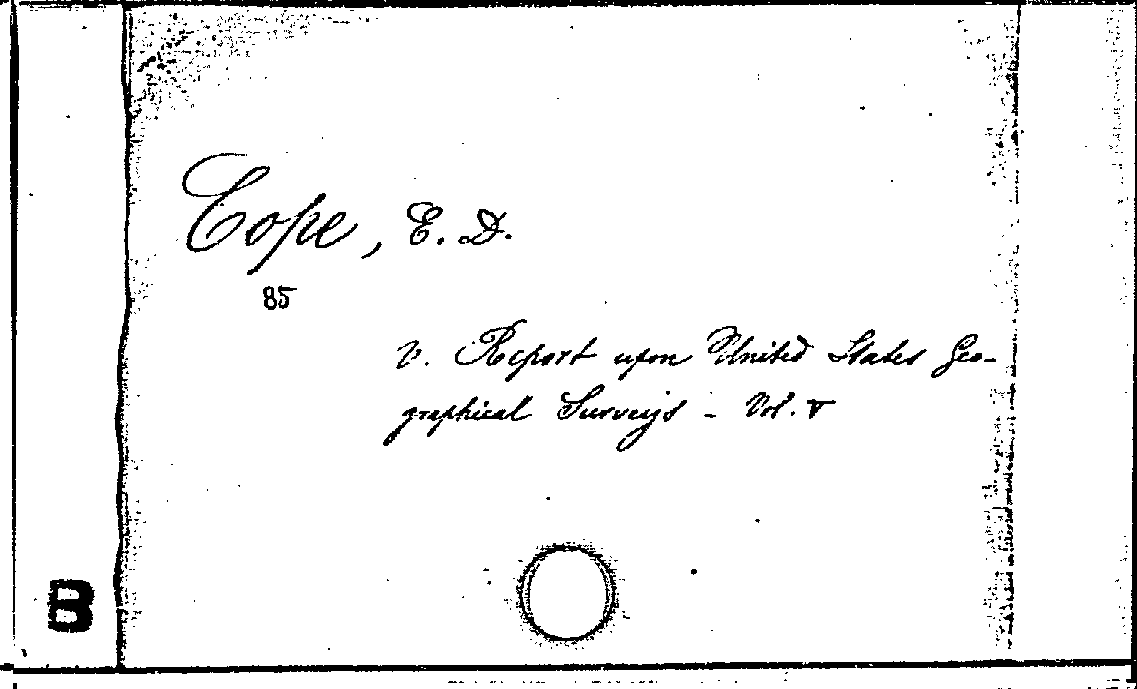 Cope, E. D.
85
v. Report upon United States Geo-
graphical Surveys - Vol. V
B